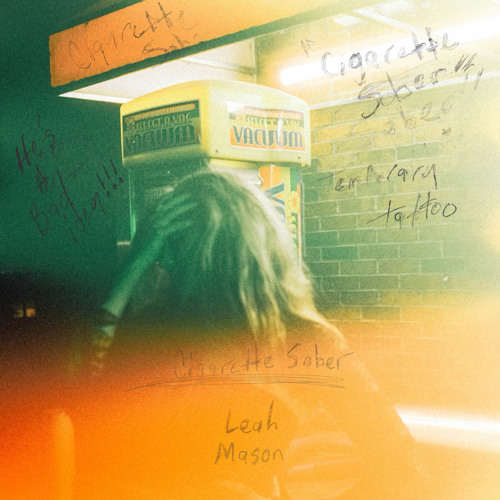 Cigarette
Sober
"Cigarette
Sober"
Sober"
Temporary
tattoo
He's
My
Bad
idea!!!
SELECT-A-VAC
VACUUM
SELECT-A-VAC
VACUUM
Cigarette Sober
Leah
Mason